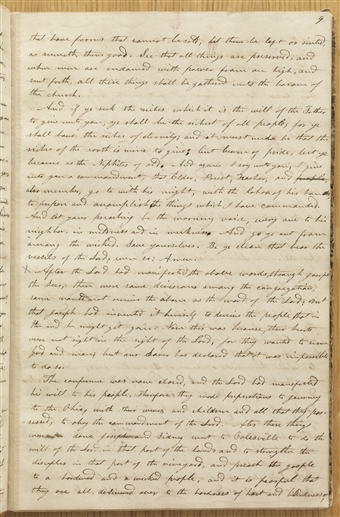 9
that have farms that cannot be sold, let them be left or rented,
as seemeth them good. See that all things are preserved, and
when men are endowed with power from on high, and
sent forth, all these things shall be gathered unto the bosom of
the church.
And if ye seek the riches which it is the will of the Father
to give unto you, ye shall be the richest of all people; for ye
shall have the riches of eternity; and it must needs be that the
riches of the earth is mine to give; but beware of pride, lest ye
become as the Nephites of old. And again I say unto you, I give
unto you a commandment, that Elder, Priest, Teacher, and
also member, go to with his might, with the labor of his hands
to prepare and accomplish the things which I have commanded.
And let your preaching be the warning voice, every man to his
neighbor, in mildness and in meekness. And go ye out from
among the wicked. Save yourselves. Be ye clean that bear the
vessels of the Lord, even so: Amen.
After the Lord had manifested the above words, through Joseph
the Seer, there were some divisions among the congregation,
some would not receive the above as the word of the Lord; but
that Joseph had invented it himself to deceive the people that in
the end he might get gain. Now this was because, their hearts
were not right in the sight of the Lord, for they wanted to serve
God and man; but our Savior has declared that it was impossible
to do so.
The conference was now closed, and the Lord had manifested
his will to his people. Therefore they made preparations to journey
to the Ohio, with their wives, and children and all that they pos-
sessed, to obey the commandment of the Lord. After these things
were done Joseph and Sidney went to Colesville to do the
will of the Lord in that part of the land and to strengthen the
disciples in that part of the vineyard, and preach the gospel
to a hardened and a wicked people; and it is fearful that
they are all delivered over to the hardness of heart and blindness of